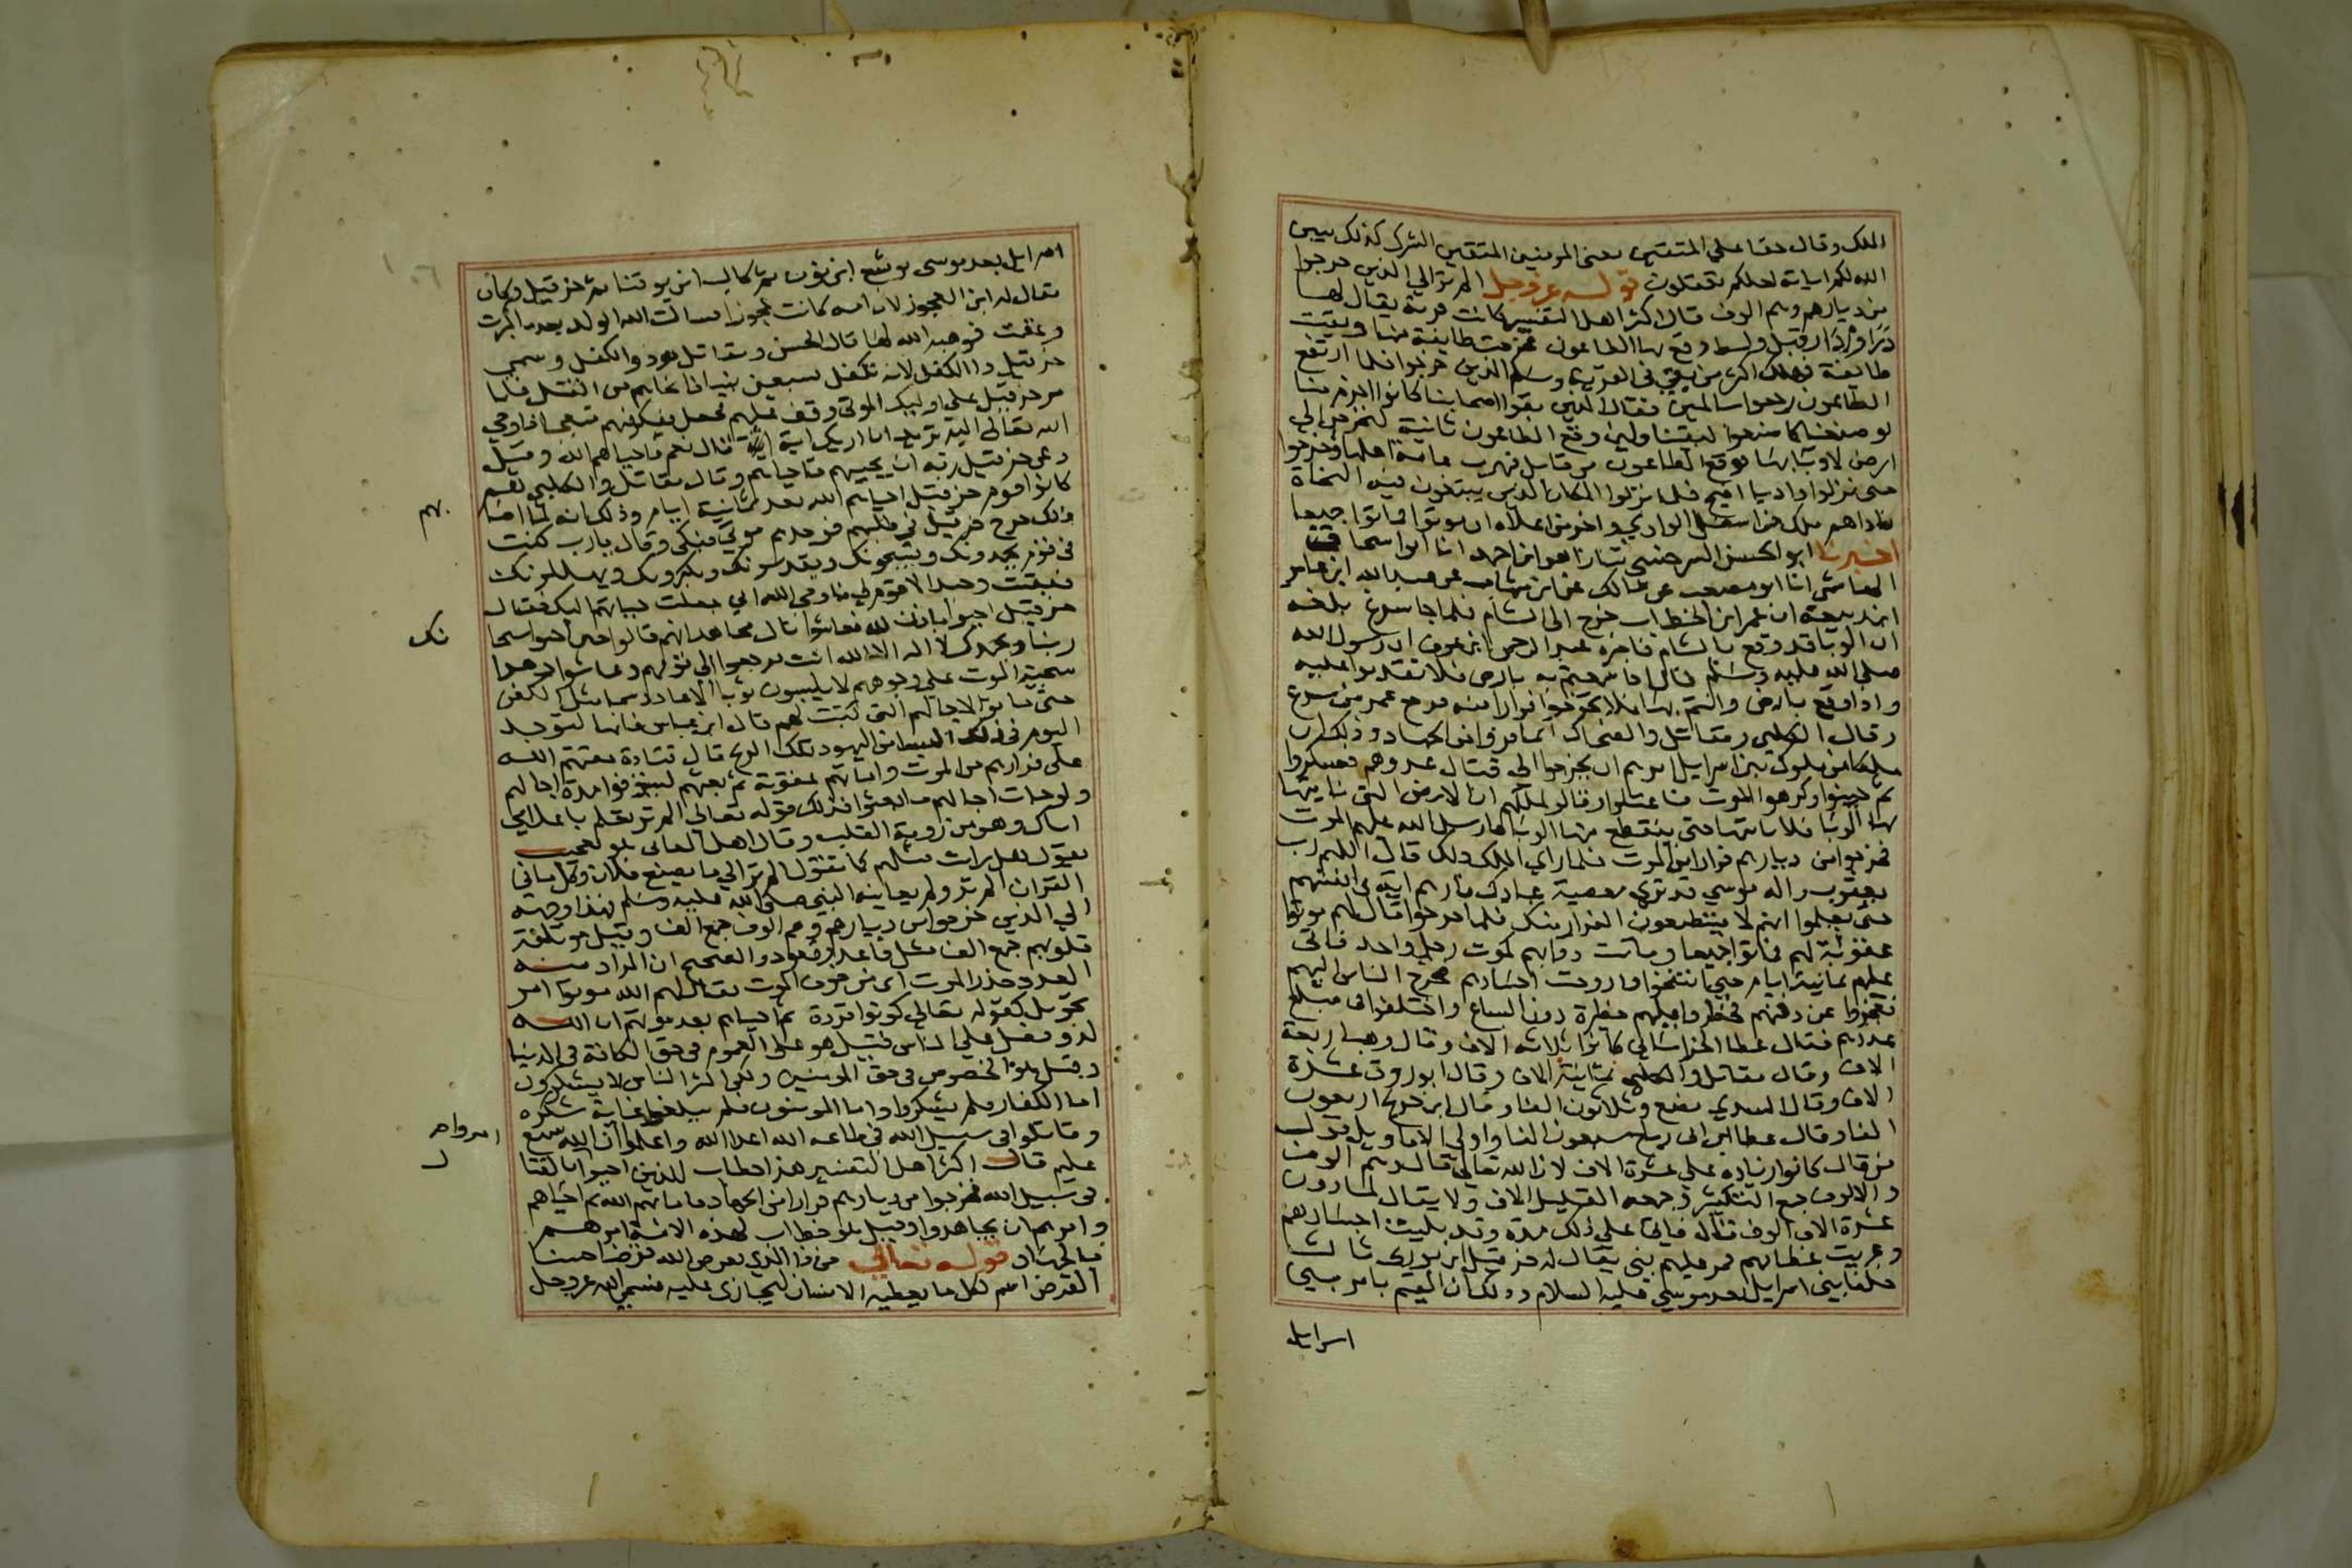 الملك وقال حقا علي المتقين يعني المومنين المتقين الشرك كذلك يبين
الله لكم اياته لعلكم تعقلون قوله عز وجل الم تر الي الذين خرجوا
من ديارهم وهم الوف قال اكثر اهل التفسير كانت قرية يقال لها
قبل واسط وقع بها الطاعون فخرجت طايفة منها وبقيت
طايفة فهلك اكثر من بقي في القرية وسلم الذين خرجوا فلما ارتفع
الطاعون رجعوا سالمين فقال الذين بقوا اصحابنا كانوا احزم منا
لو صنعنا كما صنعوا لبقينا ولين وقع الطاعون ثانية لنخرجن الي
ارض لا وبا بها فوقع الطاعون من قابل فهرب عامة اهلها وخرجوا
حتى نزلوا واديا افيح فلما نزلوا المكان الذي يبتغون فيه النجاة
ناداهم ملك من اسفل الوادي واخر من اعلاه ان موتوا فماتوا جميعا
اخبرنا ابو الحسن السرخسي انا زاهر ابن احمد انا ابو اسحاق
الهاشمي انا ابو مصعب عن مالك عن ابن شهاب عن عبد الله ابن عامر
ابن ربيعة ان عمر ابن الخطاب خرج الى الشام فلما جا سرغ بلغه
ان الوبا قد وقع بالشام فاخبره عبد الرحمن ابن عوف ان رسول الله
صلى الله عليه وسلم قال اذا سمعتم به بارض فلا تقدموا عليه
واذا وقع بارض وانتم بها فلا تخرجوا فرارا منه فرجع عمر من سرغ
وقال الكلبي ومقاتل والضحاك انما فروا من الجهاد وذلك ان
ملكا من ملوك بني اسرايل امرهم ان يخرجوا الى قتال عدوهم فعسكروا
ثم جبنوا وكرهوا الموت فاعتلوا وقالوا لملكهم ان الارض التي ناتيها
بها الوبا فلا ناتيها حتى ينقطع منها الوبا فارسل الله عليهم الموت
فخرجوا من ديارهم فرارا من الموت فلما راي الملك ذلك قال اللهم رب
يعقوب واله موسي قد تري معصية عبادك فارهم اية في انفسهم
حتى يعلموا انهم لا يستطيعون الفرار منك فلما خرجوا قال لهم موتوا
عقوبة لهم فماتوا جميعا وماتت دوابهم كموت رجل واحد فاتى
عليهم ثمانية ايام حتي انتفخوا واروحت اجسادهم فخرج الناس اليهم
فعجزوا عن دفنهم فحظروا عليهم حظيرة دون السباع واختلفوا في مبلغ
عددهم فقال عطا الخراساني كانوا ثلاثة الاف وقال وهب اربعة
الاف وقال مقاتل والكلبي ثمانية الاف وقال ابو روق عشرة
الاف وقال السدي بضع وثلاثون الفا وقال ابن جريج اربعون
الفا وقال عطا ابن ابي رباح سبعون الفا واولي الاقاويل قول
من قال كانوا زيادة علي عشرة الاف لان الله تعالي قال وهم الوف
والالوف جمع التكثير وجمعه القليل الاف ولا يقال لما دون
عشرة الاف الوف قالوا فاتى علي ذلك مدة وقد بليت اجسادهم
وعريت عظامهم فمر عليهم نبي يقال له حزقيل ابن بوزي ثالث
خلفا بني اسرايل بعد موسي عليه السلام وذلك ان القيم بامر بني
اسرايل
اسرايل بعد موسى يوشع ابن نون ثم كالب ابن يوقنا ثم حزقيل وكان
يقال له ابن العجوز لان امه كانت عجوزا فسالت الله الولد بعد ما كبرت
وعقمت فوهبه الله لها قال الحسن ومقاتل هو ذو الكفل وسمي
حزقيل ذا الكفل لانه تكفل سبعين نبيا فانجاهم من القتل فلما
مر حزقيل علي اوليك الموتى وقف عليهم فجعل يفكر فيهم متعجبا فاوحي
الله تعالى اليه تريد ان اريك اية قال نعم فاحياهم الله وقيل
دعي حزقيل ربه ان يحييهم فاحياهم وقال مقاتل والكلبي هم
كانوا قوم حزقيل احياهم الله بعد ثمانية ايام وذلك انه لما اصابهم
ذلك خرج حزقيل في طلبهم فوجدهم موتي فبكى وقال يارب كنت
في قوم يحمدونك ويسبحونك ويقدسونك ويكبرونك ويهللونك
فبقيت وحدا لا قوم لي فاوحى الله اني جعلت حياتهم اليك فقال
حزقيل احيوا باذن الله فعاشوا قال مجاهد انهم قالوا حين احيوا سبحانك
ربنا وبحمدك لا اله الا انت فرجعوا الي قومهم وعاشوا دهرا
سحنة الموت علي وجوههم لا يلبسون ثوبا الا عاد دسما مثل الكفن
حتى ماتوا لاجالهم التي كتبت لهم قال ابن عباس فانها لتوجد
اليوم في ذلك السبط من اليهود تلك الريح قال قتادة مقتهم الله
على فرارهم من الموت واماتهم عقوبة ثم بعثهم ليستوفوا مدة اجالهم
ولو جات اجالهم ما بعثوا فذلك قوله تعالى الم تر تعلم باعلامي
اياك وهو من روية القلب وقال اهل المعاني هو تعجيب
يقول هل رايت مثلهم كما تقول الم تر الي ما يصنع فلان وكل ما في
القران الم تر ولم يعاينه النبي صلى الله عليه وسلم فهذا وجهه
الي الذين خرجوا من ديارهم وهم الوف جمع الف وقيل موتلفة
قلوبهم جمع الف مثل قاعد وقعود والصحيح ان المراد منه
العدد حذر الموت اي من خوف الموت فقال لهم الله موتوا امر
تحويل كقوله تعالي كونوا قردة ثم احياهم بعد موتهم ان الله
لذو فضل علي الناس قيل هو على العموم في حق الكافة في الدنيا
وقيل هو الخصوص في حق المومنين ولكن اكثر الناس لا يشكرون
اما الكفار فلم يشكروا واما المومنون فلم يبلغوا غاية شكره
وقاتلوا في سبيل الله في طاعه الله اعدا الله واعلموا ان الله سميع
عليم قال اكثر اهل التفسير هذا خطاب للذين احيوا
في سبيل الله فخرجوا من ديارهم فرارا من الجهاد فاماتهم الله ثم احياهم
وامرهم ان يجاهدوا وقيل هو خطاب لهذه الامة امرهم
بالجهاد قوله تعالي من ذا الذي يقرض الله قرضا حسنا
القرض اسم لكل ما يعطيه الانسان ليجازى عليه فسمي الله عز وجل